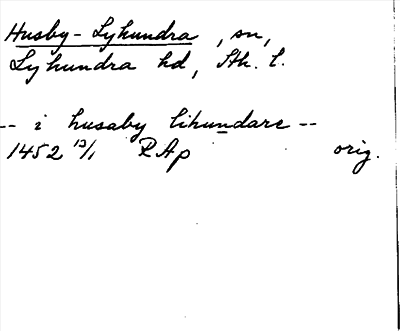 Husby-Lyhundra, sn,
Lyhundra hd, Sth. l.
-- i husaby lihundare --
1452 13/1 RAp orig.